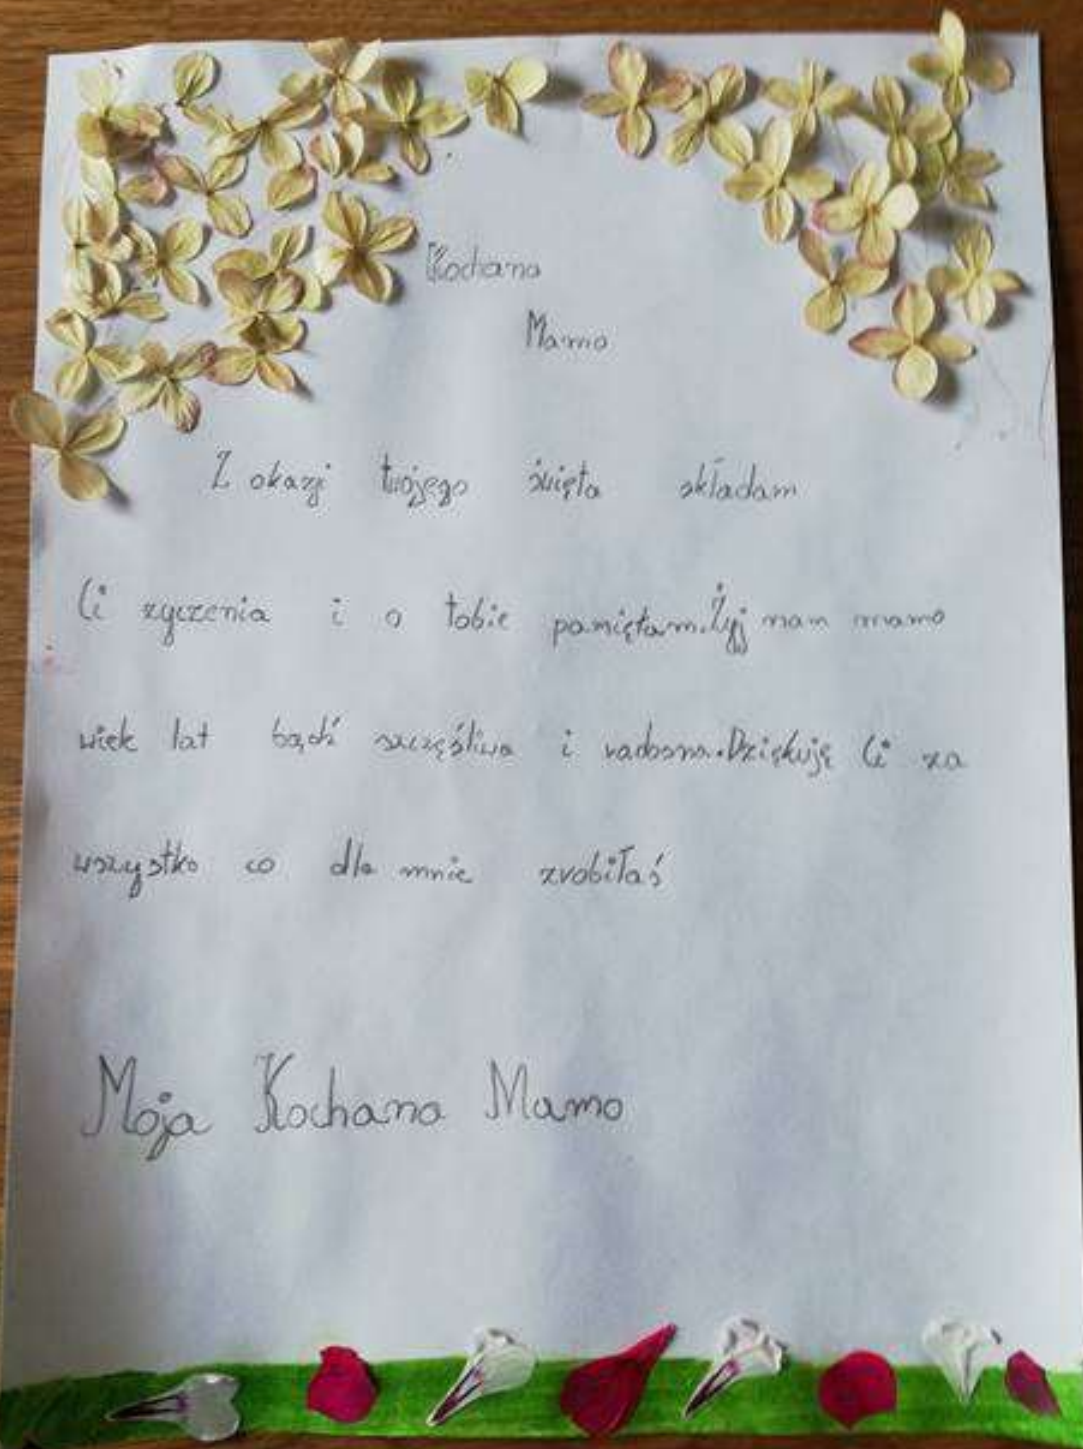 Kochana
Mamo
Z okazji twojego święta składam
Ci zyczenia i o tobie pamiętam. Żyj nam mamo
wiek lat bądź szczęśliwa i radosna. Dziękuję Ci za
wszystko co dla mnie zrobiłaś
Moja Kochana Mamo